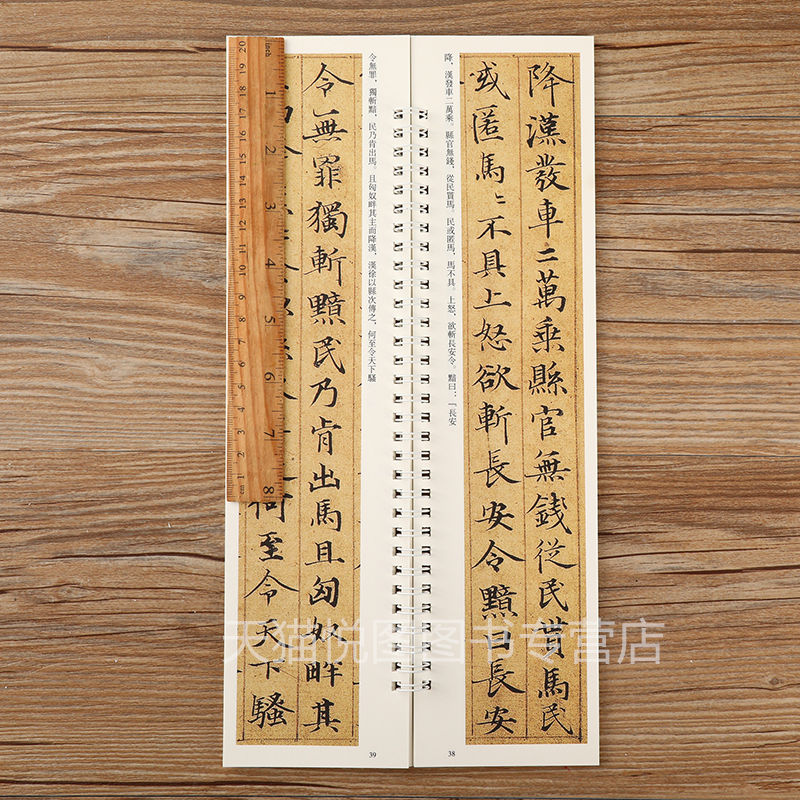 降漢發車二萬乘縣官無錢從民貰馬民
或匿馬〻不具上怒欲斬長安令黯曰長安
降，漢發車二萬乘。縣官無錢，從民貰馬。民或匿馬，馬不具。上怒，欲斬長安令。黯曰：「長安
38
令無罪，獨斬黯，民乃肯出馬。且匈奴畔其主而降漢，漢徐以縣次傳之，何至令天下騷
令無罪獨斬黯民乃肯出馬且匈奴畔其
何至令天下騷
39
inch 1 2 3 4 5 6 7 8
20 19 18 17 16 15 14 13 12 11 10 9 8 7 6 5 4 3 2 1 cm
天猫悦图图书专营店